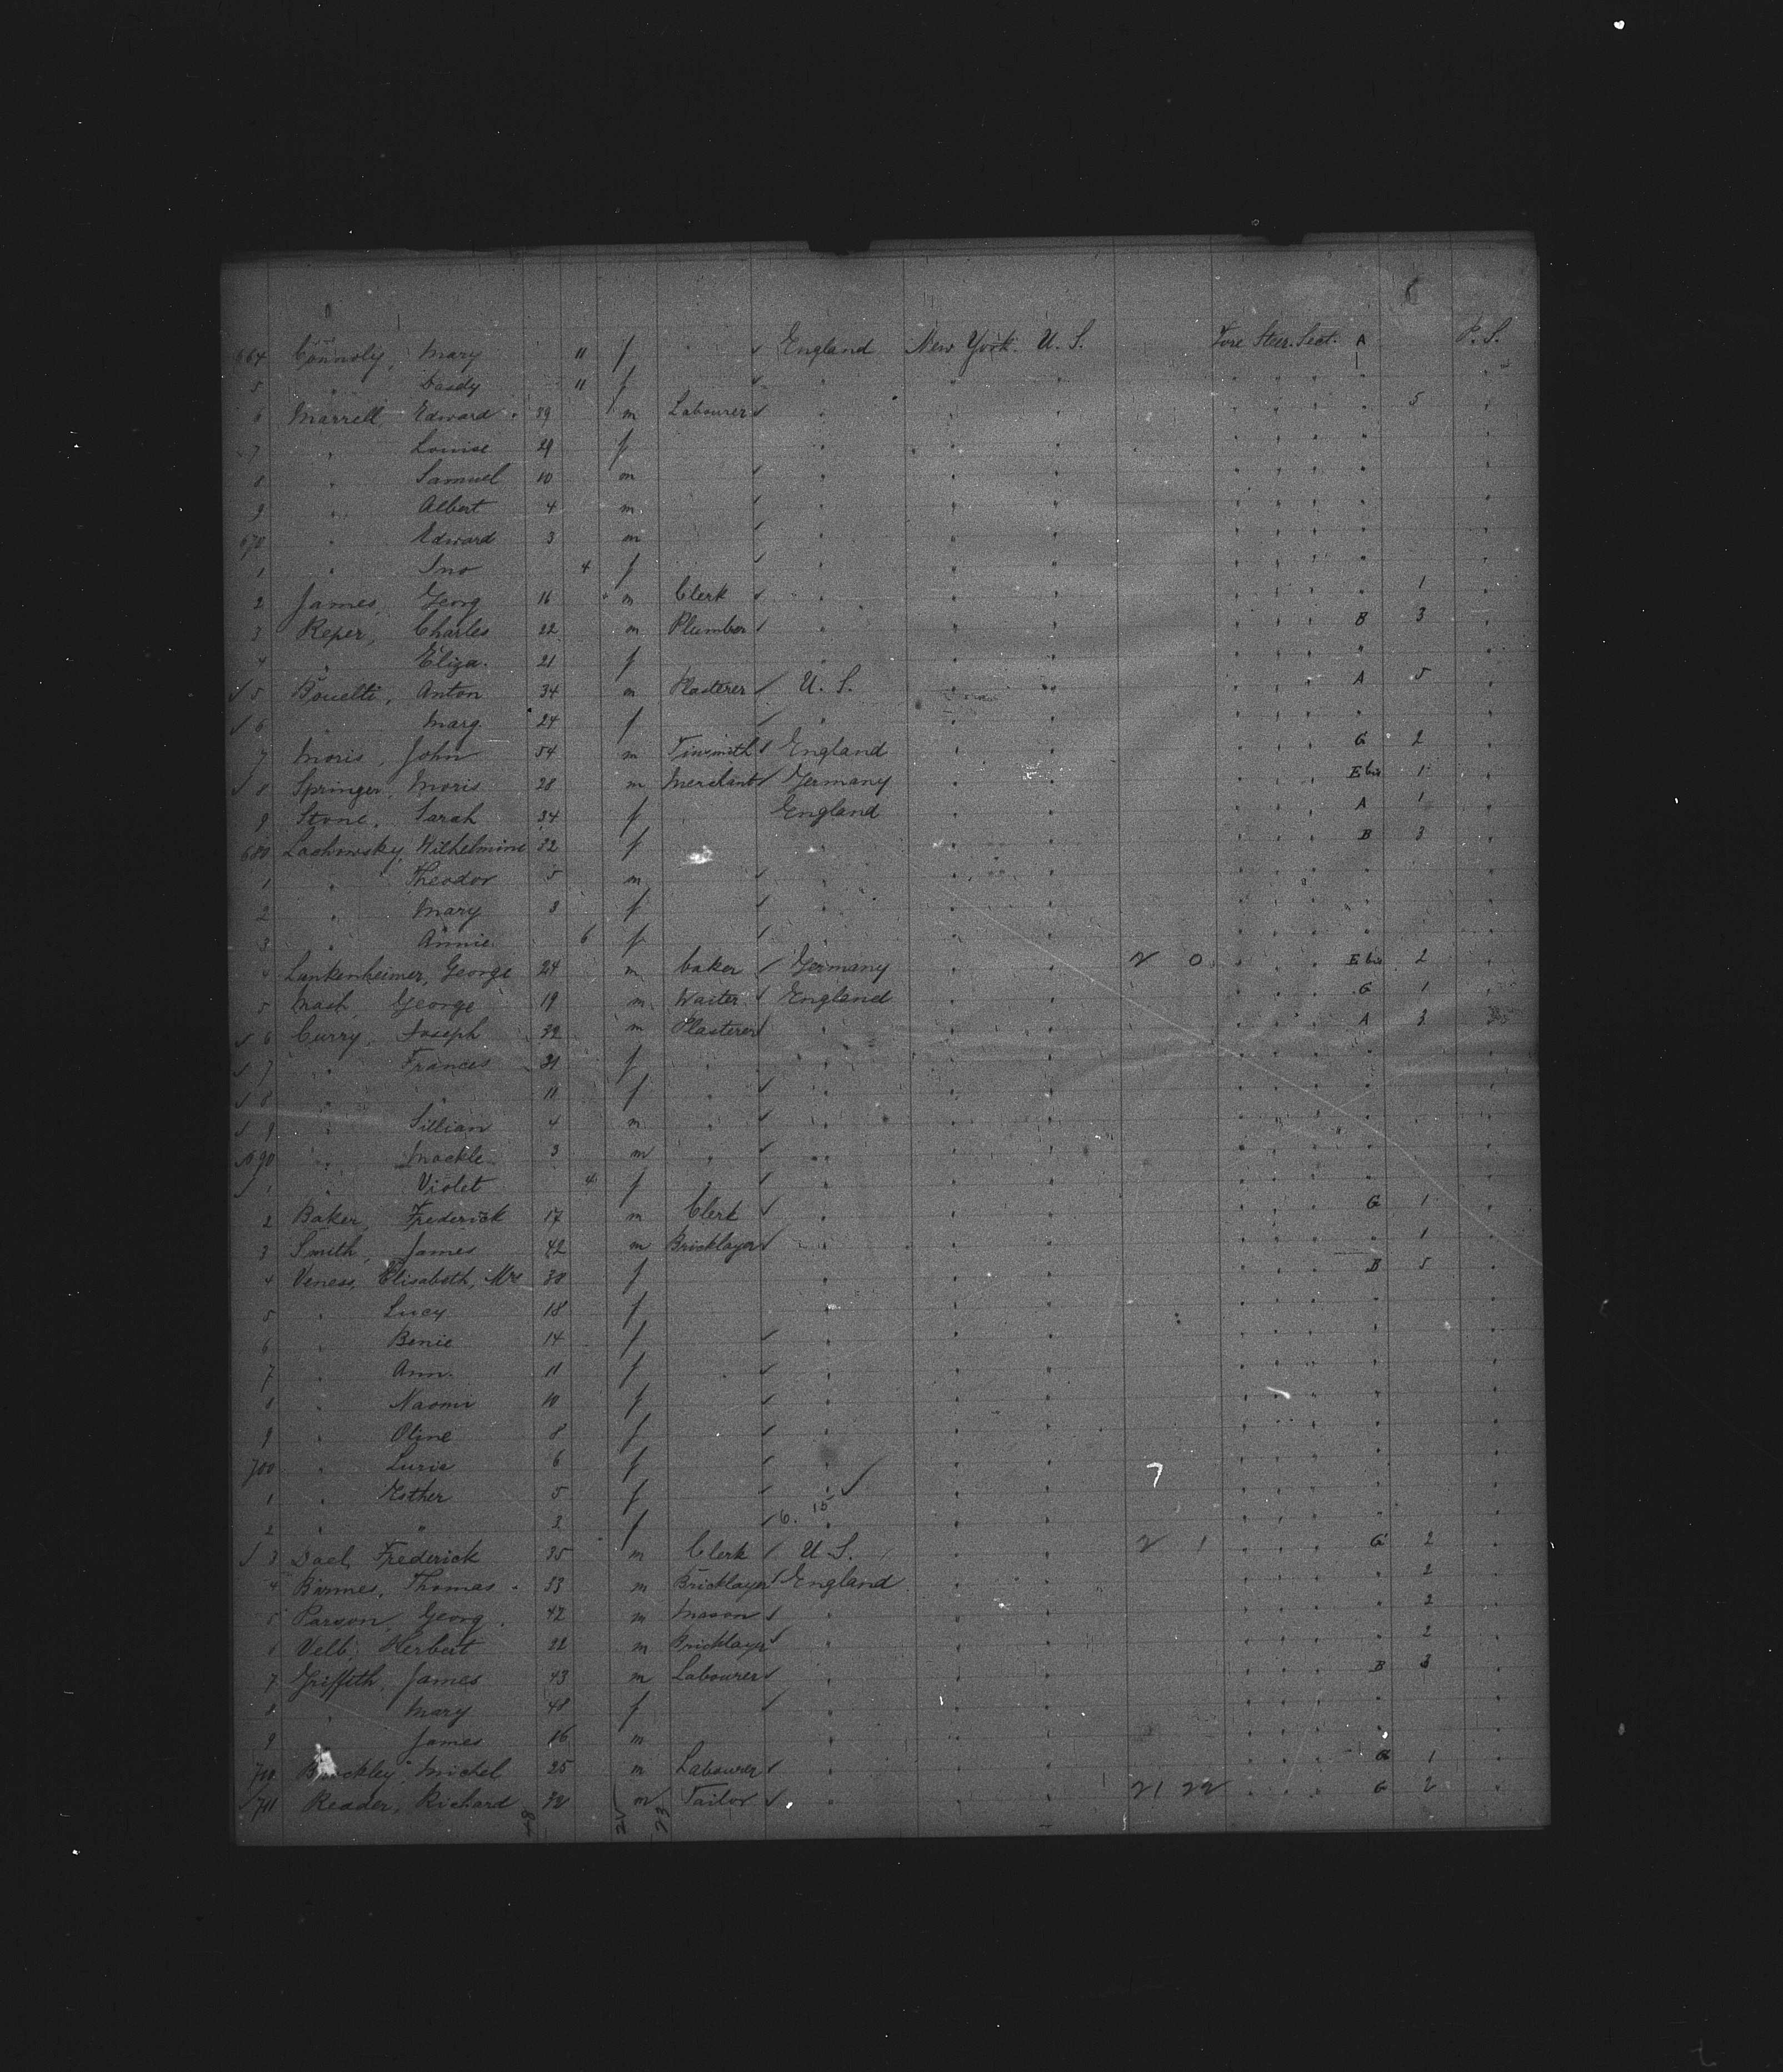 664 Connoly, Mary 11 f " ✓ England New York. U. S. Fore Steer. Sect. A P. S.
5 " Dasdy 11 f ✓ " " " " " " " "
6 Marrell, Edward 39 m Labourer ✓ " " " " " " " 5 "
7 " Louise 29 f " " " " " " " "
8 " Samuel 10 m ✓ " " " " " " " "
9 " Albert 4 m. ✓ " " " " " " " "
670 " Edward 3 m ✓ " " " " " " " "
1 " Ino 4 f ✓ " " " " " " " "
2 James, Georg 16 m Clerk ✓ " " " " " " " 1 "
3 Reper, Charles 22 m Plumber ✓ " " " " " " B 3 "
4 " Eliza. 21 f " " " " " " " "
✓ 5 Bouelti, Anton 34 m Plasterer ✓ U. S. " " " " " A 5 "
✓ 6 " Marg. 24 f ✓ " " " " " " " "
7 Moris, John 54 m Tinsmith ✓ England " " " " " G 2 "
✓ 8 Springer, Moris 28 m Merchant ✓ Germany " " " " " E bis 1 "
9 Stone, Sarah 34 f England " " " " " A 1 "
680 Lachowsky, Wilhelmine 32 f " " " " " " B 3 "
1 " Theodor 5 m ✓ " " " " " " " "
2 " Mary 3 f ✓ " " " " " " " "
3 " Annie 6 f ✓ " " " " " " " "
4 Lankenheimer, George 24 m baker ✓ Germany " " 2 0 " " " E bis 2 "
5 Mash, George 19 m Waiter ✓ England " " " " " G 1 "
✓ 6 Curry, Joseph 32 m Plasterer ✓ " " " " " " A 3 "
✓ 7 " Frances 31 f " " " " " " " " "
✓ 8 " " 11 f " ✓ " " " " " " " "
✓ 9 " Lillian 4 m " ✓ " " " " " " " "
✓ 690 " Mackle 3 m " ✓ " " " " " " " "
✓ 1 " Violet 4 f " ✓ " " " " " " " "
2 Baker, Frederick 17 m Clerk ✓ " " " " " " G 1 "
3 Smith, James 42 m Bricklayer ✓ " " " " " " " 1 "
4 Veness, Elisabeth, Mrs 38 f " " " " " " B 5 "
5 " Lucy 18 f " " " " " " " "
6 " Benie 14 f ✓ " " " " " " " "
7 " Ann. 11 f ✓ " " " " " " " "
8 " Naomi 10 f ✓ " " " " " " " "
9 " Oline 8 f ✓ " " " " " " " "
700 " Lurie 6 f ✓ " " " " " " " "
1 " Esther 5 f ✓ " ✓ " " " " " " "
2 " " 3 f ✓ 6. 15 " " " " " " "
✓ 3 Dael, Frederick 35 m Clerk ✓ U. S. " " 2 1 " " " G 2 "
4 Birmes, Thomas 33 m Bricklayer ✓ England " " " " " " 2 "
5 Parson, Georg 42 m Mason ✓ " " " " " " " 2 "
6 Velb, Herbert 22 m Bricklayer ✓ " " " " " " " 2 "
7 Griffith, James 43 m Labourer ✓ " " " " " " B 3 "
8 " Mary 48 f ✓ " " " " " " " "
9 " James 16 m " " " " " " " "
710 Michel 25 m Labourer ✓ " " " " " " G 1 "
✓ 711 Reader, Richard 32 m Tailor ✓ " " " 21 22 " " " G 2 "